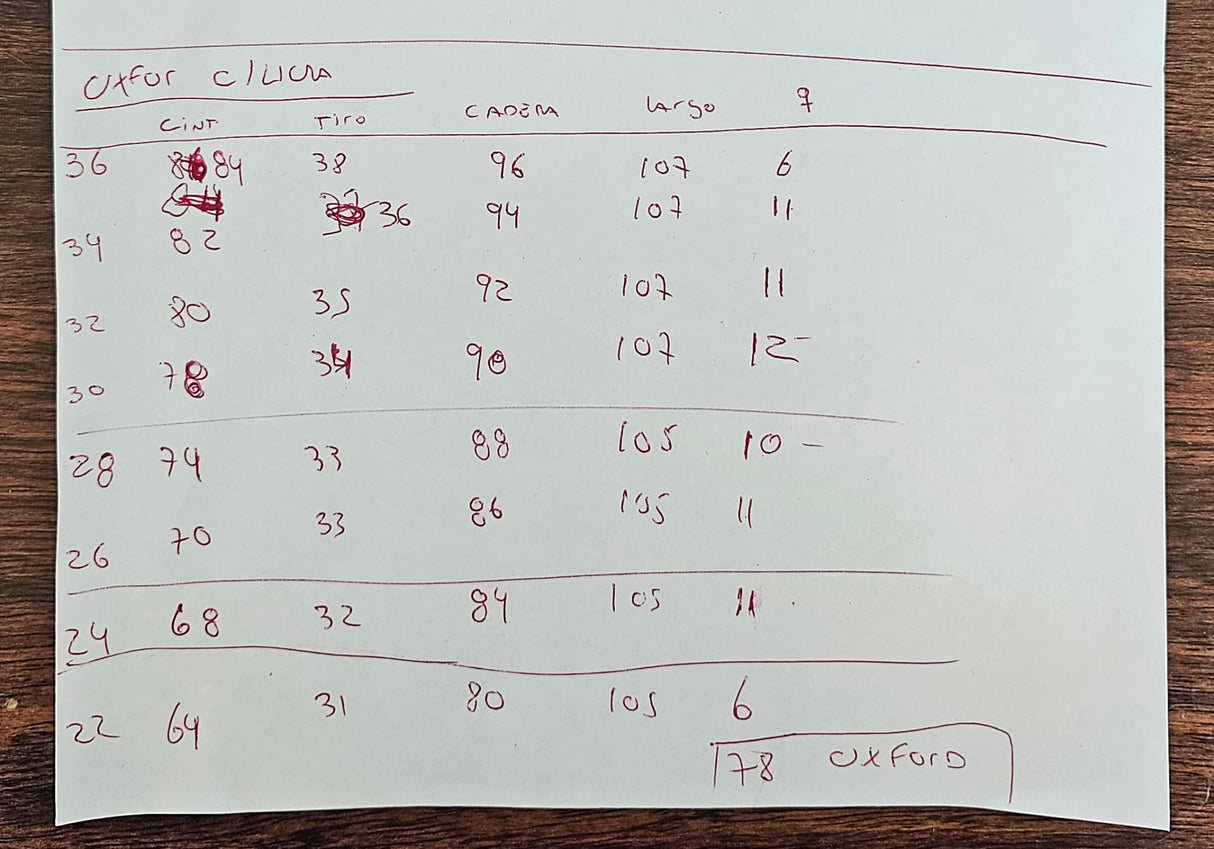 OXFOR C/LICRA
CINT TIRO CADERA LArgo q
36 84 38 96 107 6
34 82 36 94 107 11
32 80 35 92 107 11
30 78 34 90 107 12-
28 74 33 88 105 10 -
26 70 33 86 105 11
24 68 32 84 105 11
22 64 31 80 105 6
78 OXFORD